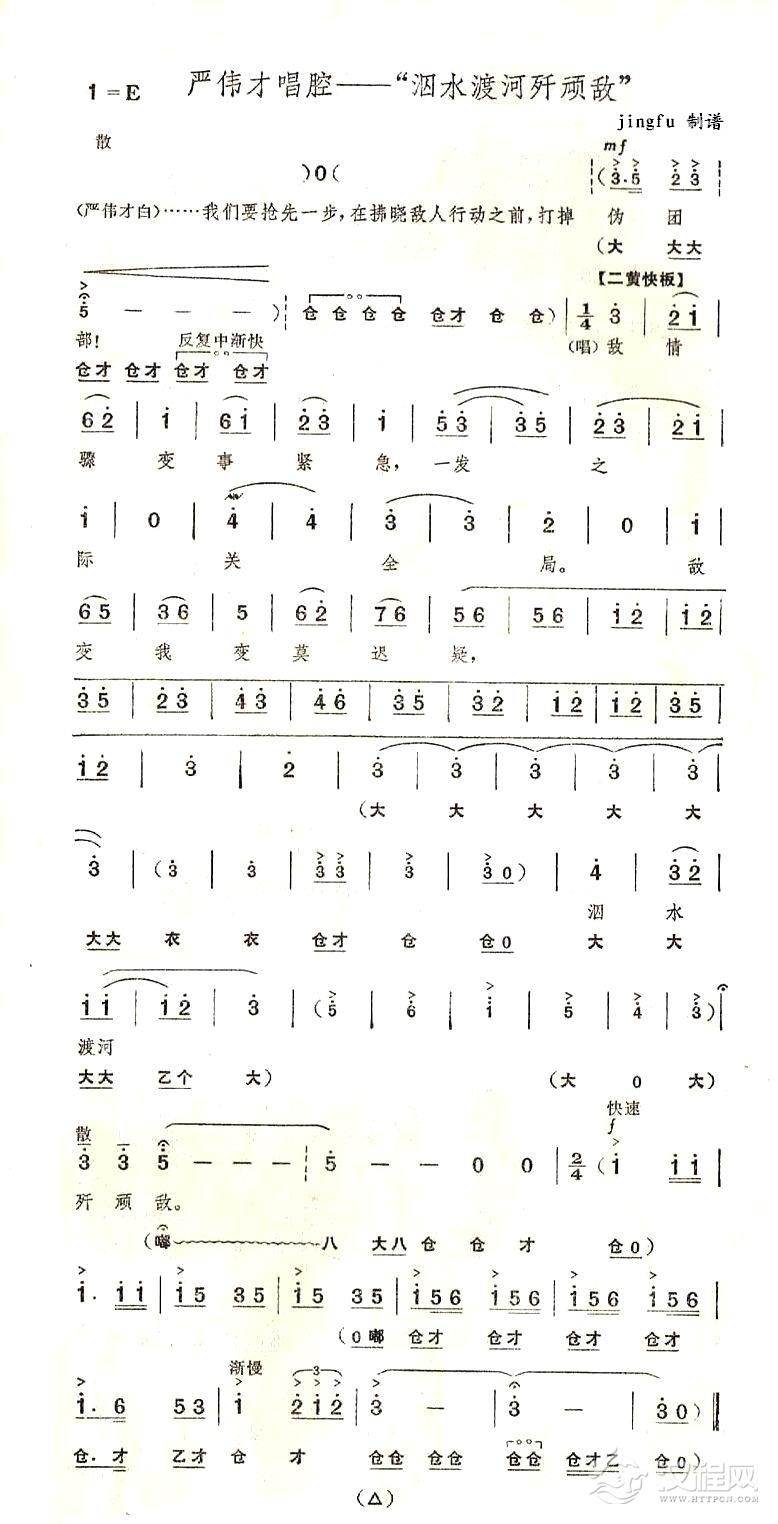 1=E 严伟才唱腔——“泅水渡河歼顽敌”
jingfu 制谱
散 mf
)0( (3·5 2 3
(严伟才白)……我们要抢先一步,在拂晓敌人行动之前,打掉 伪 团
(大 大大
【二黄快板】
5 — — — ) 仓 仓 仓 仓 仓才 仓 仓) 1/4 3 | 2 1 |
部! 反复中渐快 (唱)敌 情
仓才 仓才 仓才 仓才
6 2 | 1 | 6 1 | 2 3 | 1 | 5 3 | 3 5 | 2 3 | 2 1 |
骤 变 事 紧 急, 一发 之
1 | 0 | 4 | 4 | 3 | 3 | 2 | 0 | 1 |
际 关 全 局。 敌
6 5 | 3 6 | 5 | 6 2 | 7 6 | 5 6 | 5 6 | 1 2 | 1 2 |
变 我 变 莫 迟 疑,
3 5 | 2 3 | 4 3 | 4 6 | 3 5 | 3 2 | 1 2 | 1 2 | 3 5 |
1 2 | 3 | 2 | 3 | 3 | 3 | 3 | 3 |
(大 大 大 大 大
3 | (3 | 3 | 3 3 | 3 | 3 0) | 4 | 3 2 |
泅 水
大大 衣 衣 仓才 仓 仓0 大 大
1 1 | 1 2 | 3 | (5 | 6 | 1 | 5 | 4 | 3) |
渡河
大大 乙个 大) (大 0 大)
快速
散 f
3 3 5 — — — 5 — — 0 0 | 2/4 (1 1 1 |
歼 顽 敌。
(嘟 八 大八 仓 仓 才 仓0)
1· 1 1 | 1 5 3 5 | 1 5 3 5 | 1 5 6 1 5 6 | 1 5 6 1 5 6 |
(0嘟 仓才 仓才 仓才 仓才
渐慢 3
1· 6 5 3 | 1 2 1 2 | 3 — | 3 — | 3 0) ‖
仓· 才 乙才 仓 才 仓仓 仓仓 仓仓 仓才乙 仓0)
(△)
汉程网
WWW.HTTPCN.COM